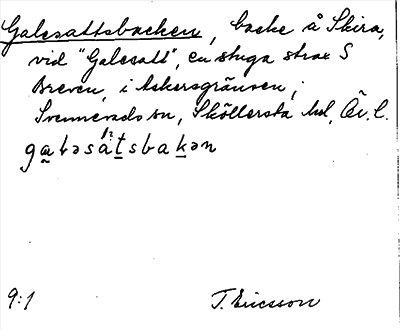 Galesattsbacken, backe å Skira,
vid "Galesatt", en stuga strax S
Breven, i Askersgränsen;
Svennevads sn, Sköllersta hd, Ör. l.
galəsàtsbakən
9:1 T. Ericsson